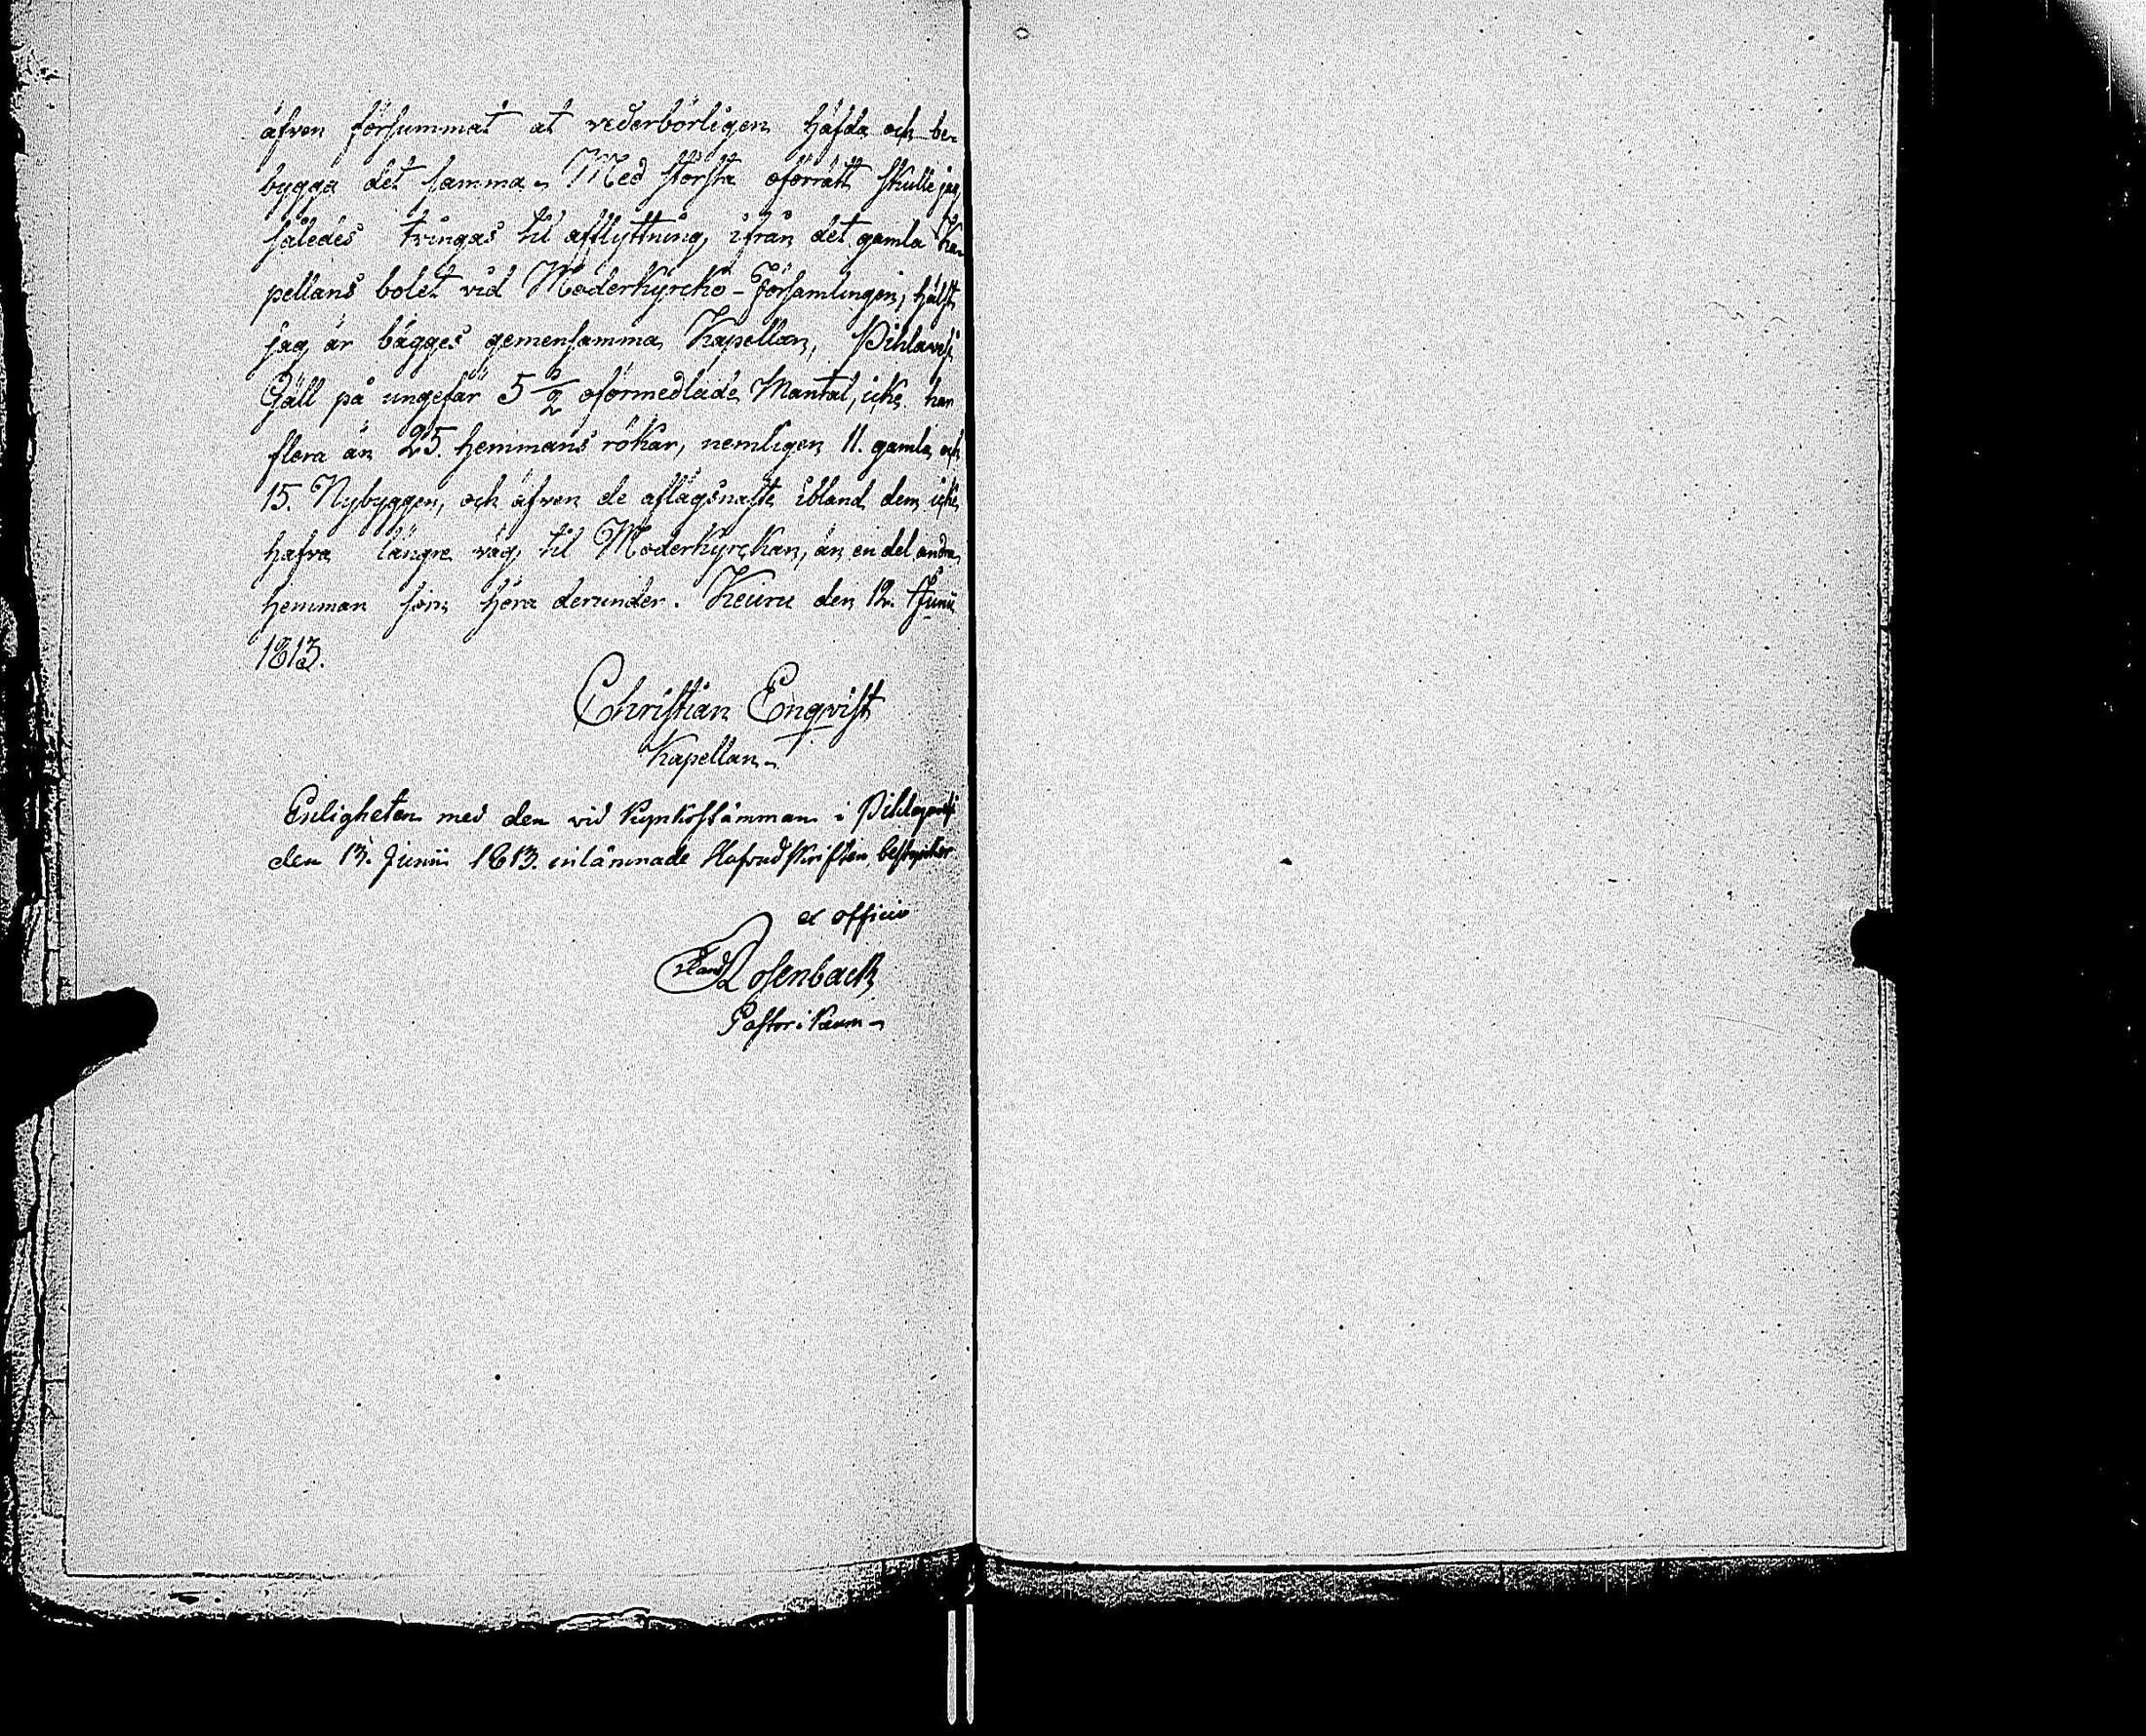 äfven försummat at vederbörligen häfda och be-
bygga det samma. Med största oförrätt skulle jag
således tvingas til afflyttning, ifrån det gamla Ka-
pellans bolet vid Moderkyrcko-Församlingen, hälst
jag är bägges gemensamma Kapellan, Pihlavesi
Gäll på ungefär 5 oförmedlade Mantal, icke har
flera än 25. hemmans rökar, nemligen 11. gamla och
15. Nybyggen, och äfven de aflägsnaste ibland dem icke
hafva längre väg til Moderkyrckan, än en del andra
hemman som höra derunder. Keuru den 12. Junii
1813.
Christian Enqvist
Kapellan.
Enligheten med den vid Kyrkostämman i Pihlajavesi
den 13. Junii 1813. inlämnade Hufvudskriften, bestyrcker
ex officio
Rosenback
Pastor i Keuru